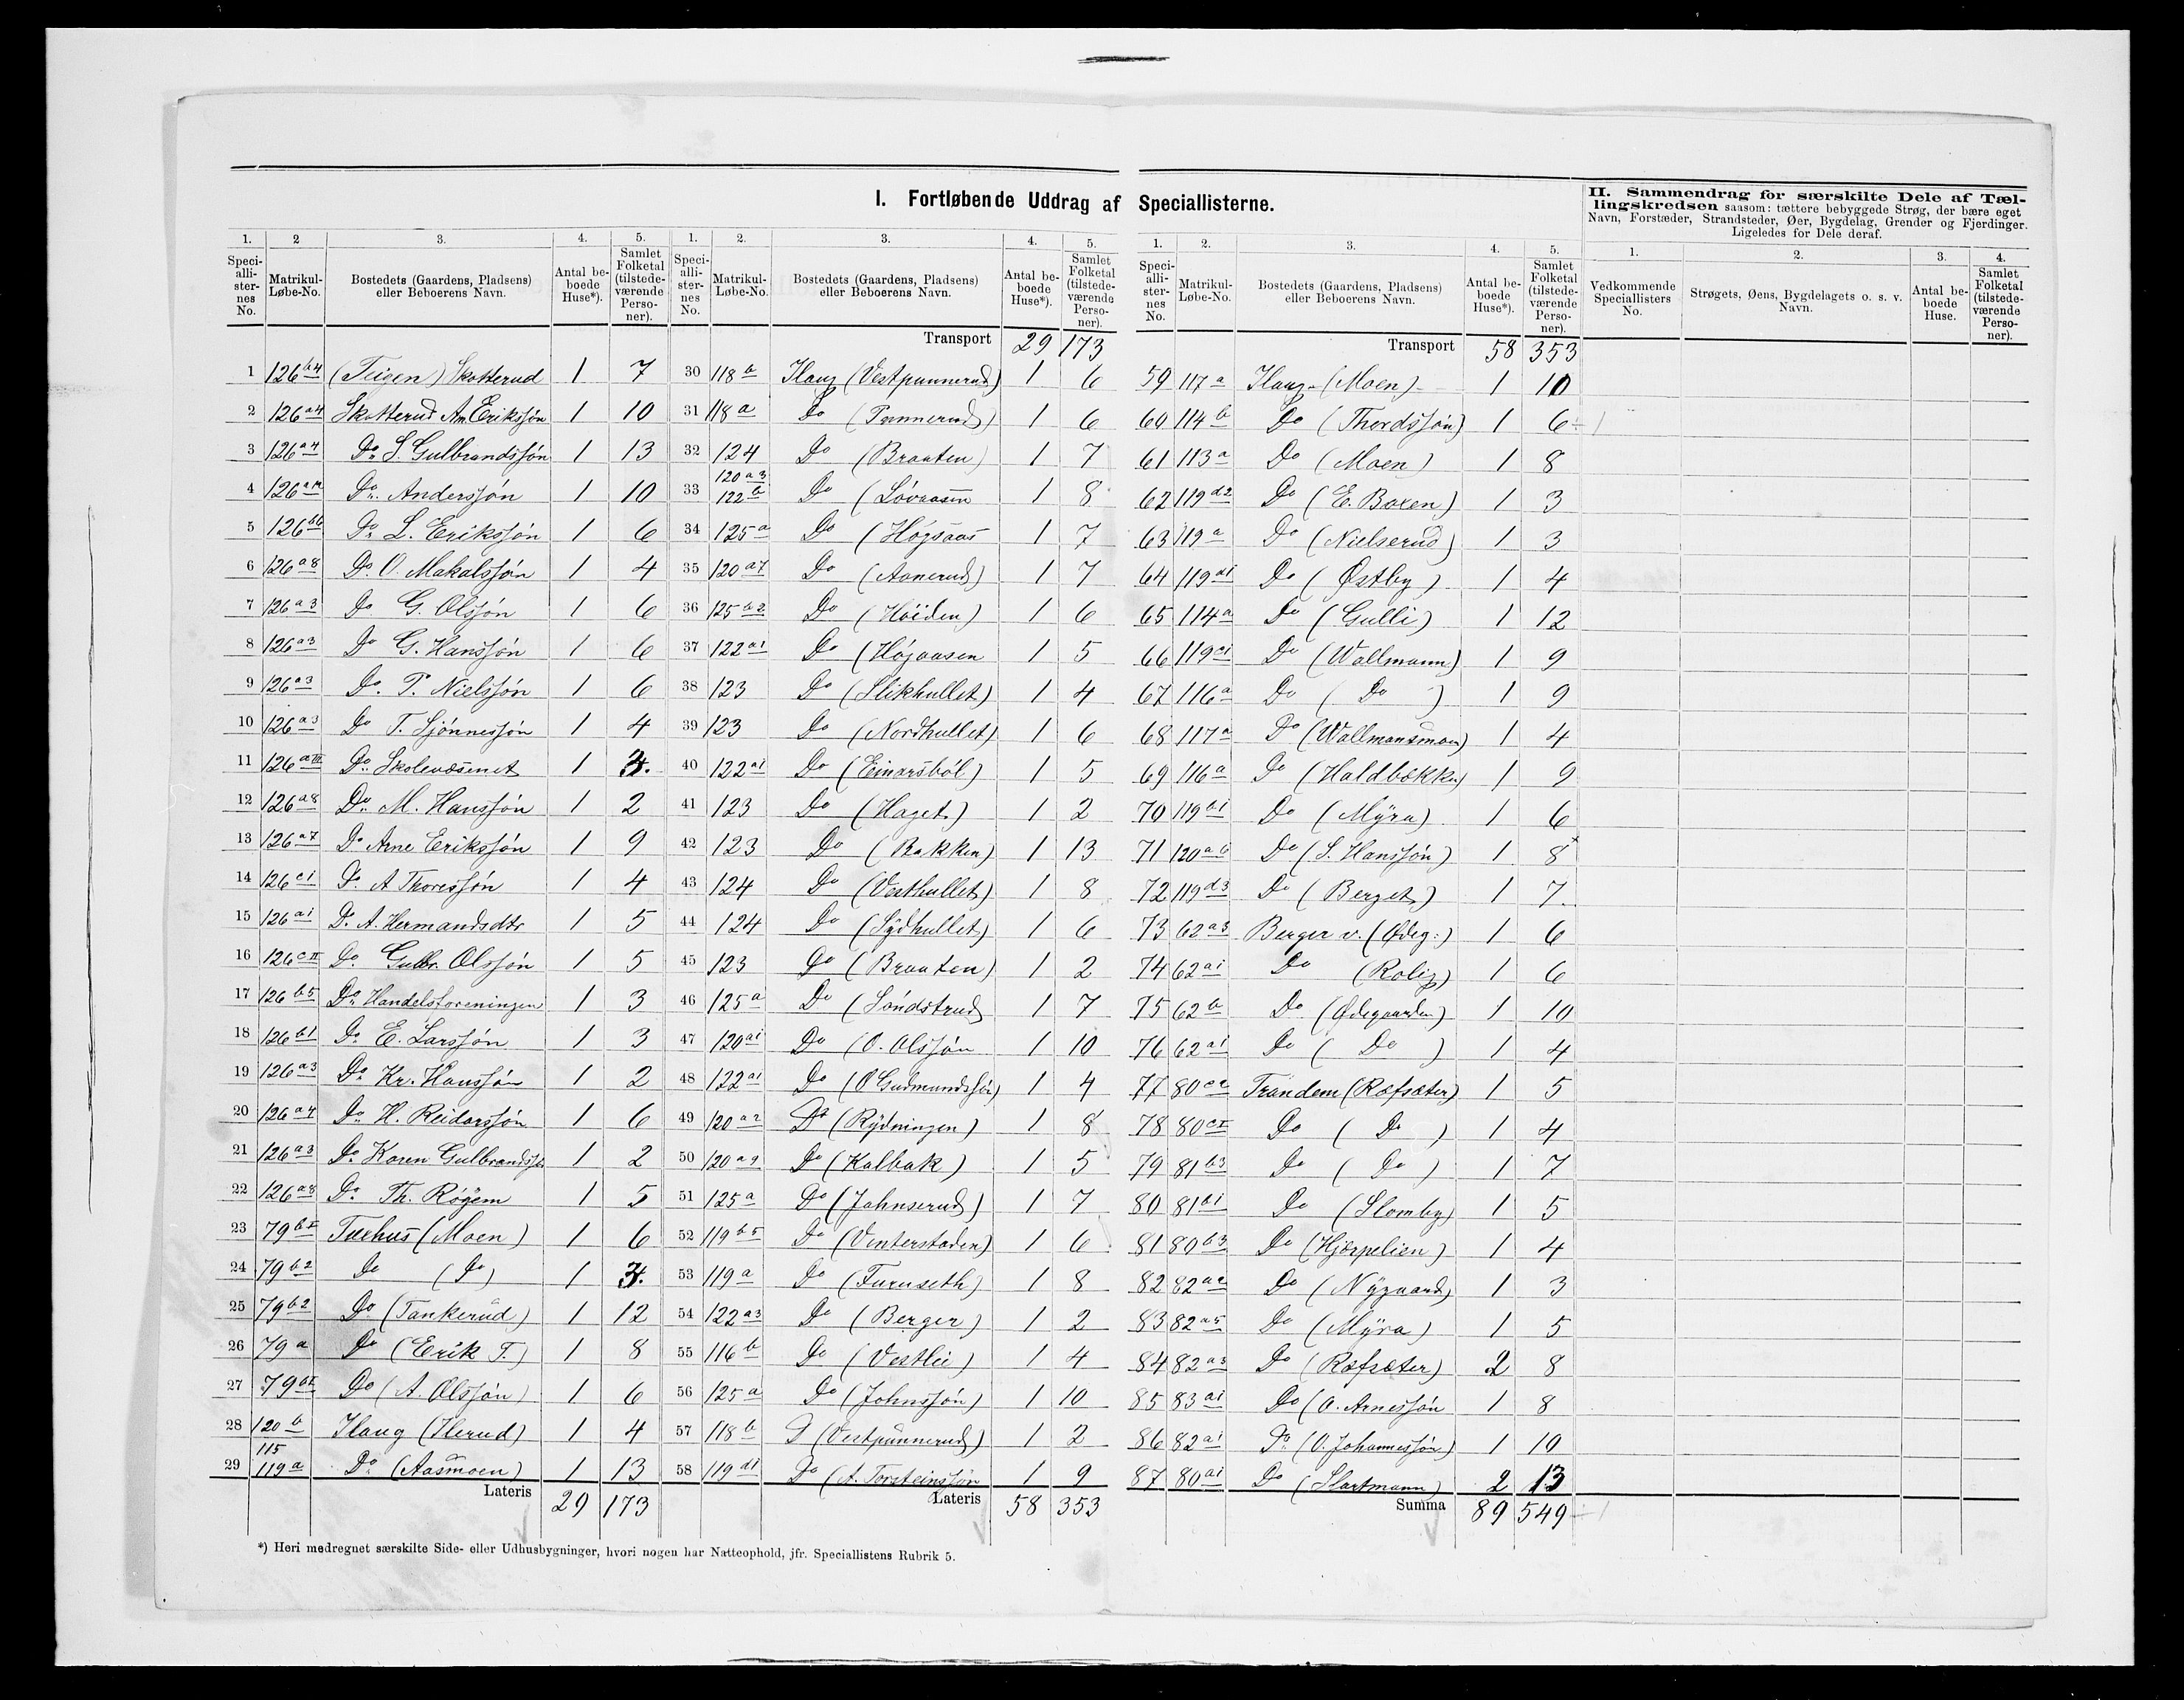 I. Fortløbende Uddrag af Speciallisterne.
II. Sammendrag for særskilte Dele af Tæl-
lingskredsen saasom: tættere bebyggede Strøg, der bære eget
Navn, Forstæder, Strandsteder, Øer, Bygdelag, Grender og Fjerdinger.
Ligeledes for Dele deraf.
1. 2 3. 4. 5.
Speciallisternes No. Matrikul-Løbe-No. Bostedets (Gaardens, Pladsens) eller Beboerens Navn. Antal beboede Huse*). Samlet Folketal (tilstedeværende Personer).
1 126 b4 (Teigen) Skotterud 1 7
2 126 a4 Skotterud Am Eriksjøn 1 10
3 126 a4 Do S. Gulbrandsjøn 1 13
4 126 Do Andersjøn 1 10
5 126 b6 Do L. Eriksjøn 1 6
6 126 a8 Do O. Makalsjøn 1 4
7 126 a3 Do G. Olsjøn 1 6
8 126 a3 Do G. Hansjøn 1 6
9 126 a3 Do P. Nielsjøn 1 6
10 126 a3 Do T. Sjønnesjøn 1 4
11 126 Do Skolevæsenet 1
12 126 a8 Do M. Hansjøn 1 2
13 126 a7 Do Arne Eriksjøn 1 9
14 126 c1 Do A Thoresjøn 1 4
15 126 a1 Do A. Hermandsdtr 1 5
16 126 c II Do Gulbr. Olsjøn 1 5
17 126 b5 Do Handelsforeningen 1 3
18 126 b1 Do E. Larsjøn 1 3
19 126 a3 Do Kr. Hansjøn 1 2
20 126 a4 Do H. Reidarsjøn 1 6
21 126 a3 Do Karen Gulbrands 1 2
22 126 a8 Do Th. Røgem 1 5
23 79 b I Tuehus (Moen) 1 6
24 79 b2 Do (Do) 1
25 79 b2 Do (Tankerud) 1 12
26 79 a Do (Erik T.) 1 8
27 79 b I Do (A. Olsjøn) 1 6
28 120 b Haug (Ilerud) 1 4
115
29 119 a Do (Aasmoen) 1 13
Lateris 29 173
1. 2. 3. 4. 5.
Speciallisternes No. Matrikul-Løbe-No. Bostedets (Gaardens, Pladsens) eller Beboerens Navn. Antal beboede Huse*). Samlet Folketal (tilstedeværende Personer).
Transport 29 173
30 118 b Haug (Vestpunnerud) 1 6
31 118 a Do (Punnerud) 1 6
32 124 Do (Braaten) 1 7
120 a3
33 122 b Do (Løvaasen 1 8
34 125 a Do (Høgsaas 1 7
35 120 a7 Do (Aanerud) 1 7
36 125 b2 Do (Høiden) 1 6
37 122 a1 Do (Høgaasen 1 5
38 123 Do (Slikhullet) 1 4
39 123 Do (Nordhullet) 1 6
40 122 a1 Do (Einarsbøl) 1 5
41 123 Do (Haget) 1 2
42 123 Do (Bakken) 1 13
43 124 Do (Vesthullet) 1 8
44 124 Do (Sydhullet) 1 6
45 123 Do (Braaten) 1 2
46 125 a Do (Søndstrud 1 7
47 120 a1 Do (O. Olsjøn 1 10
48 122 a1 Do (O Gudmundsjøn) 1 4
49 120 a2 Do (Rydningen) 1 8
50 120 a9 Do (Kalbak) 1 5
51 125 a Do (Johnserud) 1 7
52 119 b5 Do (Vinterstaden) 1 6
53 119 a Do (Furuseth) 1 8
54 122 a3 Do (Berger) 1 2
55 116 b Do (Vestlie) 1 4
56 125 a Do (Johnsjøn) 1 10
57 118 b D (Vestpunnerud) 1 2
58 119 d1 Do (A. Torsteinsjøn 1 9
Lateris 58 353
1. 2. 3. 4. 5.
Speciallisternes No. Matrikul-Løbe-No. Bostedets (Gaardens, Pladsens) eller Beboerens Navn. Antal beboede Huse*). Samlet Folketal (tilstedeværende Personer).
Transport 58 353
59 117 a Haug (Moen) 1 10
60 114 b Do (Thordsjøn) 1 6 ÷ 1
61 113 a Do (Moen) 1 8
62 119 d2 Do (E. Boxen) 1 3
63 119 a Do (Nielserud) 1 3
64 119 d1 Do (Østby) 1 4
65 114 a Do (Gulli) 1 12
66 119 c1 Do (Wallmann) 1 9
67 116 a Do (Do) 1 9
68 117 a Do (Wallmansmoen) 1 4
69 116 a Do (Haldbækken) 1 9
70 119 b1 Do (Myra) 1 6
71 120 a6 Do (S. Hansjøn) 1 8
72 119 d3 Do (Berget) 1 7
73 62 a3 Berger v. (Ødeg:) 1 6
74 62 a1 Do (Rolig) 1 6
75 62 b Do (Ødegaarden) 1 10
76 62 a1 Do (Do) 1 4
77 80 c2 Trandem (Ræfsæter) 1 5
78 80 c I Do (Do) 1 4
79 81 b3 Do (Do) 1 7
80 81 b1 Do (Slomby) 1 5
81 80 b3 Do (Hjerpelien) 1 4
82 82 a2 Do (Nygaard) 1 3
83 82 a5 Do (Myra) 1 5
84 82 a3 Do (Ræfsæter) 2 8
85 83 a1 Do (O. Arnesjøn 1 8
86 82 a1 Do (O. Johannesjøn) 1 10
87 80 a1 Do (Slartmann) 2 13
Summa 89 549 ÷ 1
1. 2. 3. 4.
Vedkommende Speciallisters No. Strøgets, Øens, Bygdelagets o. s. v. Navn. Antal beboede Huse. Samlet Folketal (tilstedeværende Personer).
*) Heri medregnet særskilte Side- eller Udhusbygninger, hvori nogen har Natteophold, jfr. Speciallistens Rubrik 5.